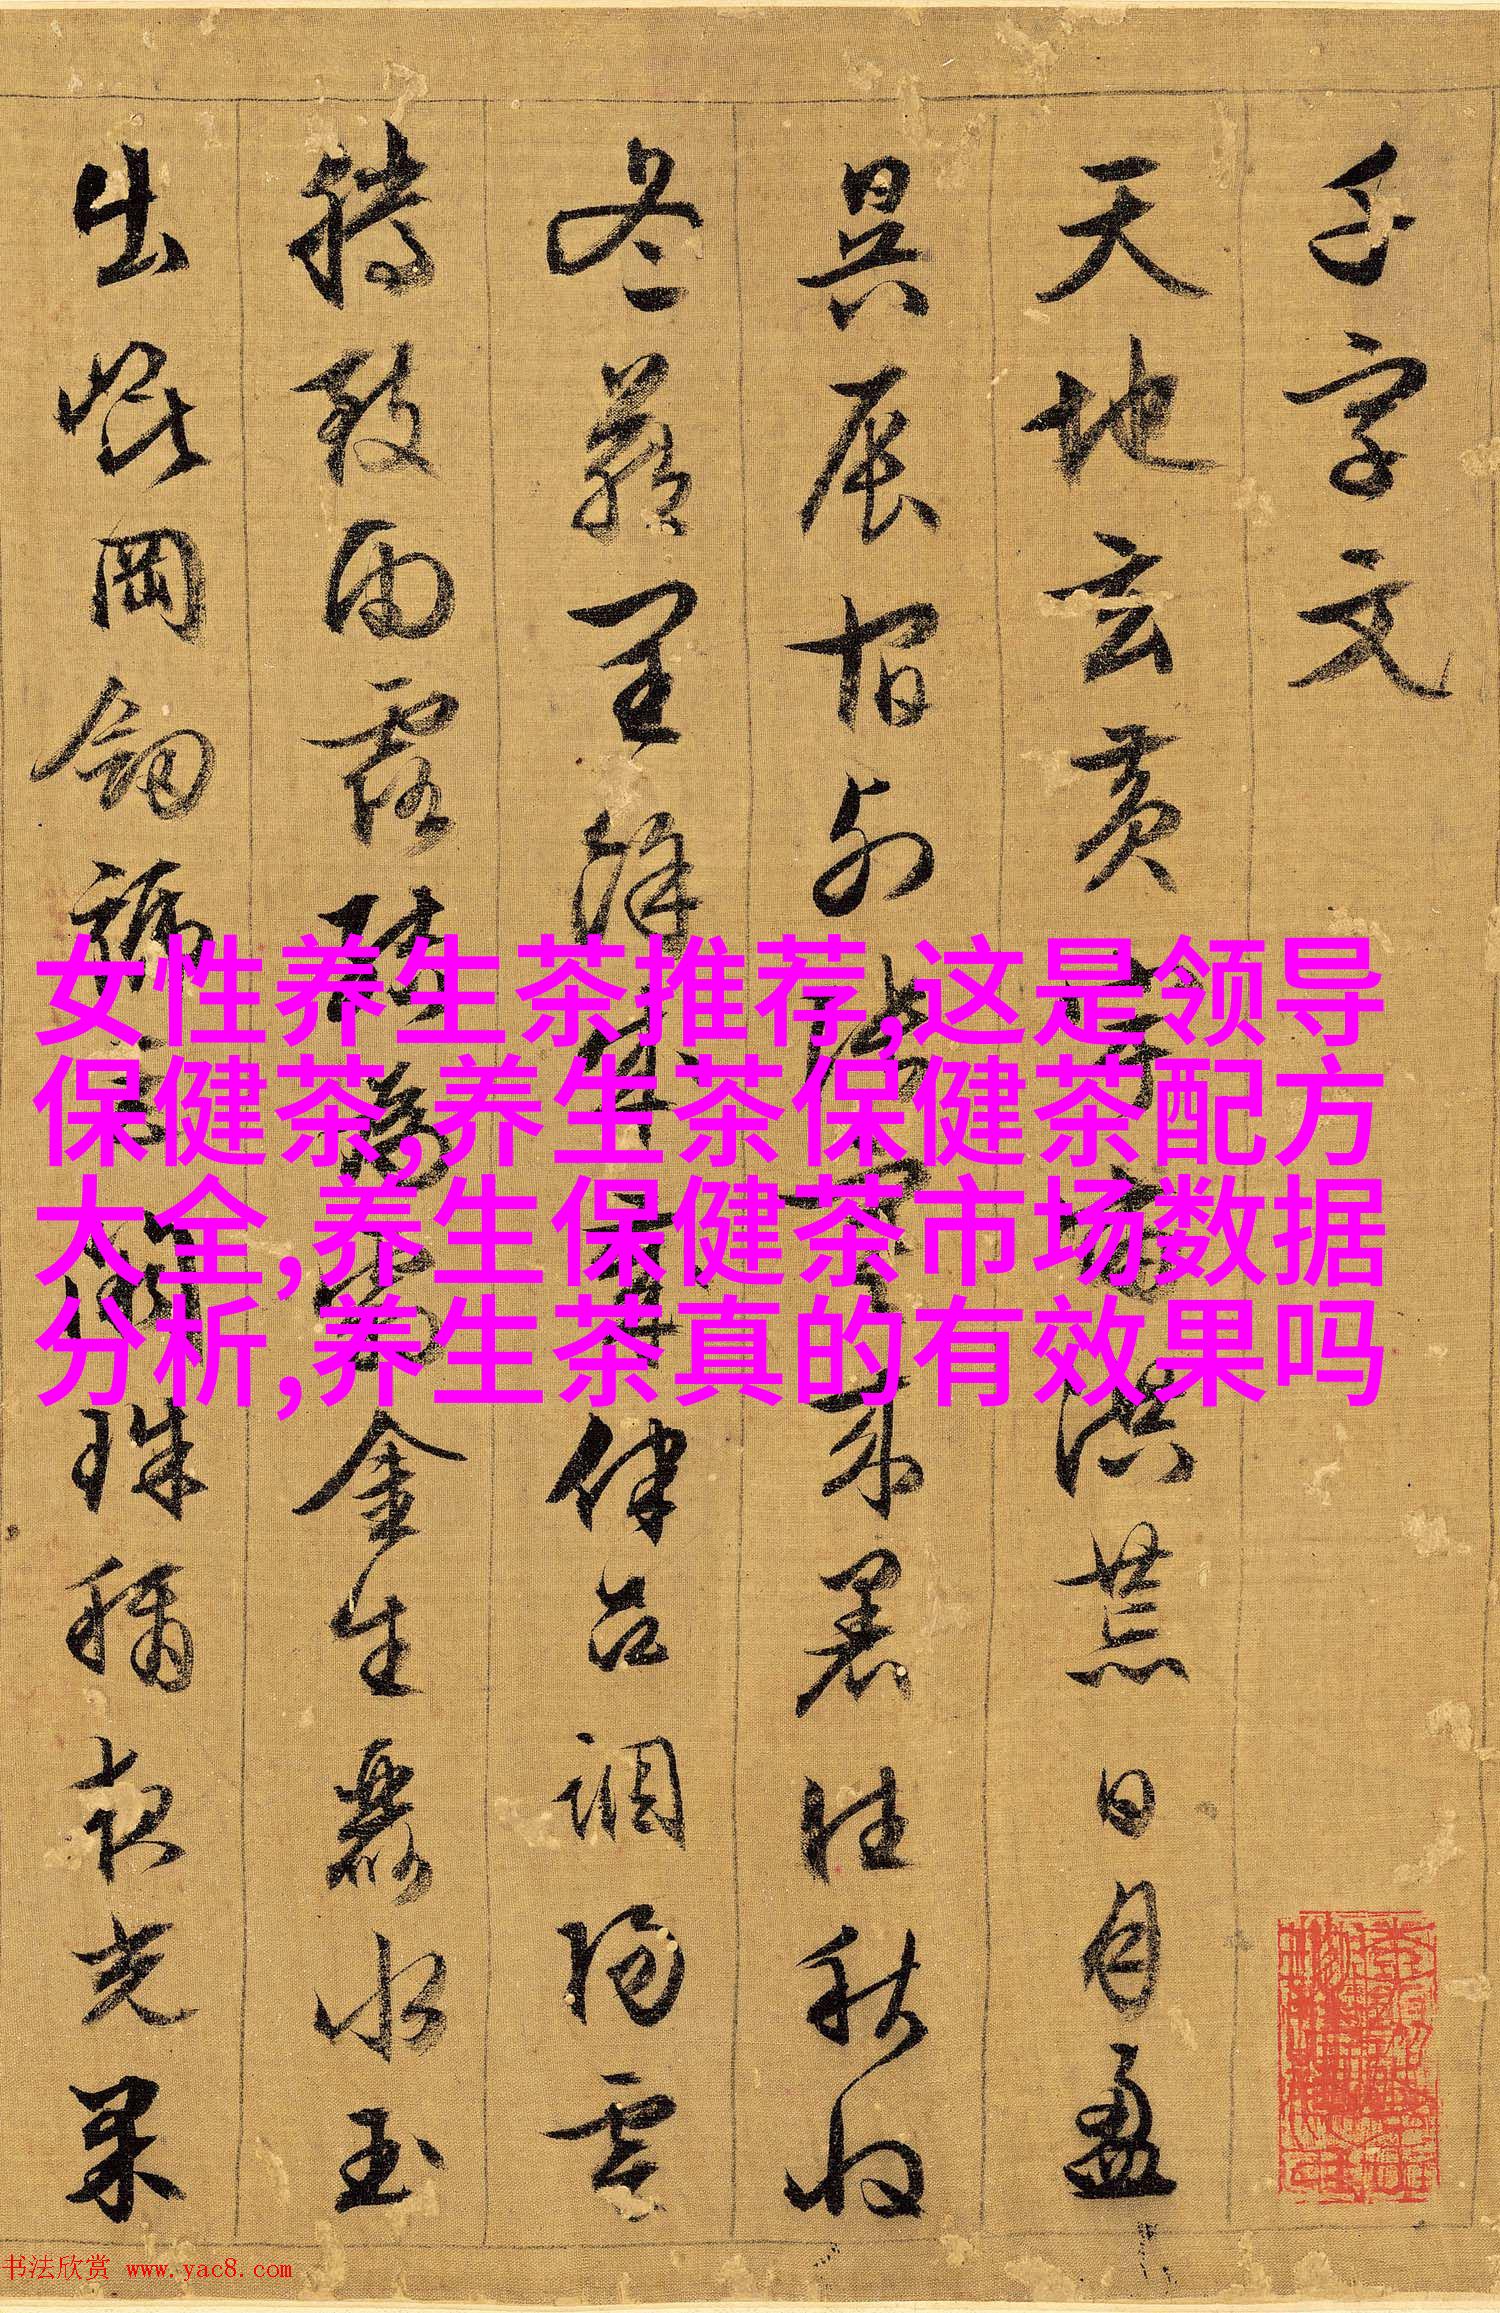 千字文
天地玄黃宇宙洪荒日月盈
昃辰宿列張寒來暑往秋收
冬藏閏餘成歲律召調陽雲
騰致雨露結為霜金生麗水玉
出崑岡劍號巨闕珠稱夜光果
女性养生茶推荐,这是领导
保健茶,养生茶保健茶配方
大全,养生保健茶市场数据
分析,养生茶真的有效果吗
书法欣赏 www.yac8.com